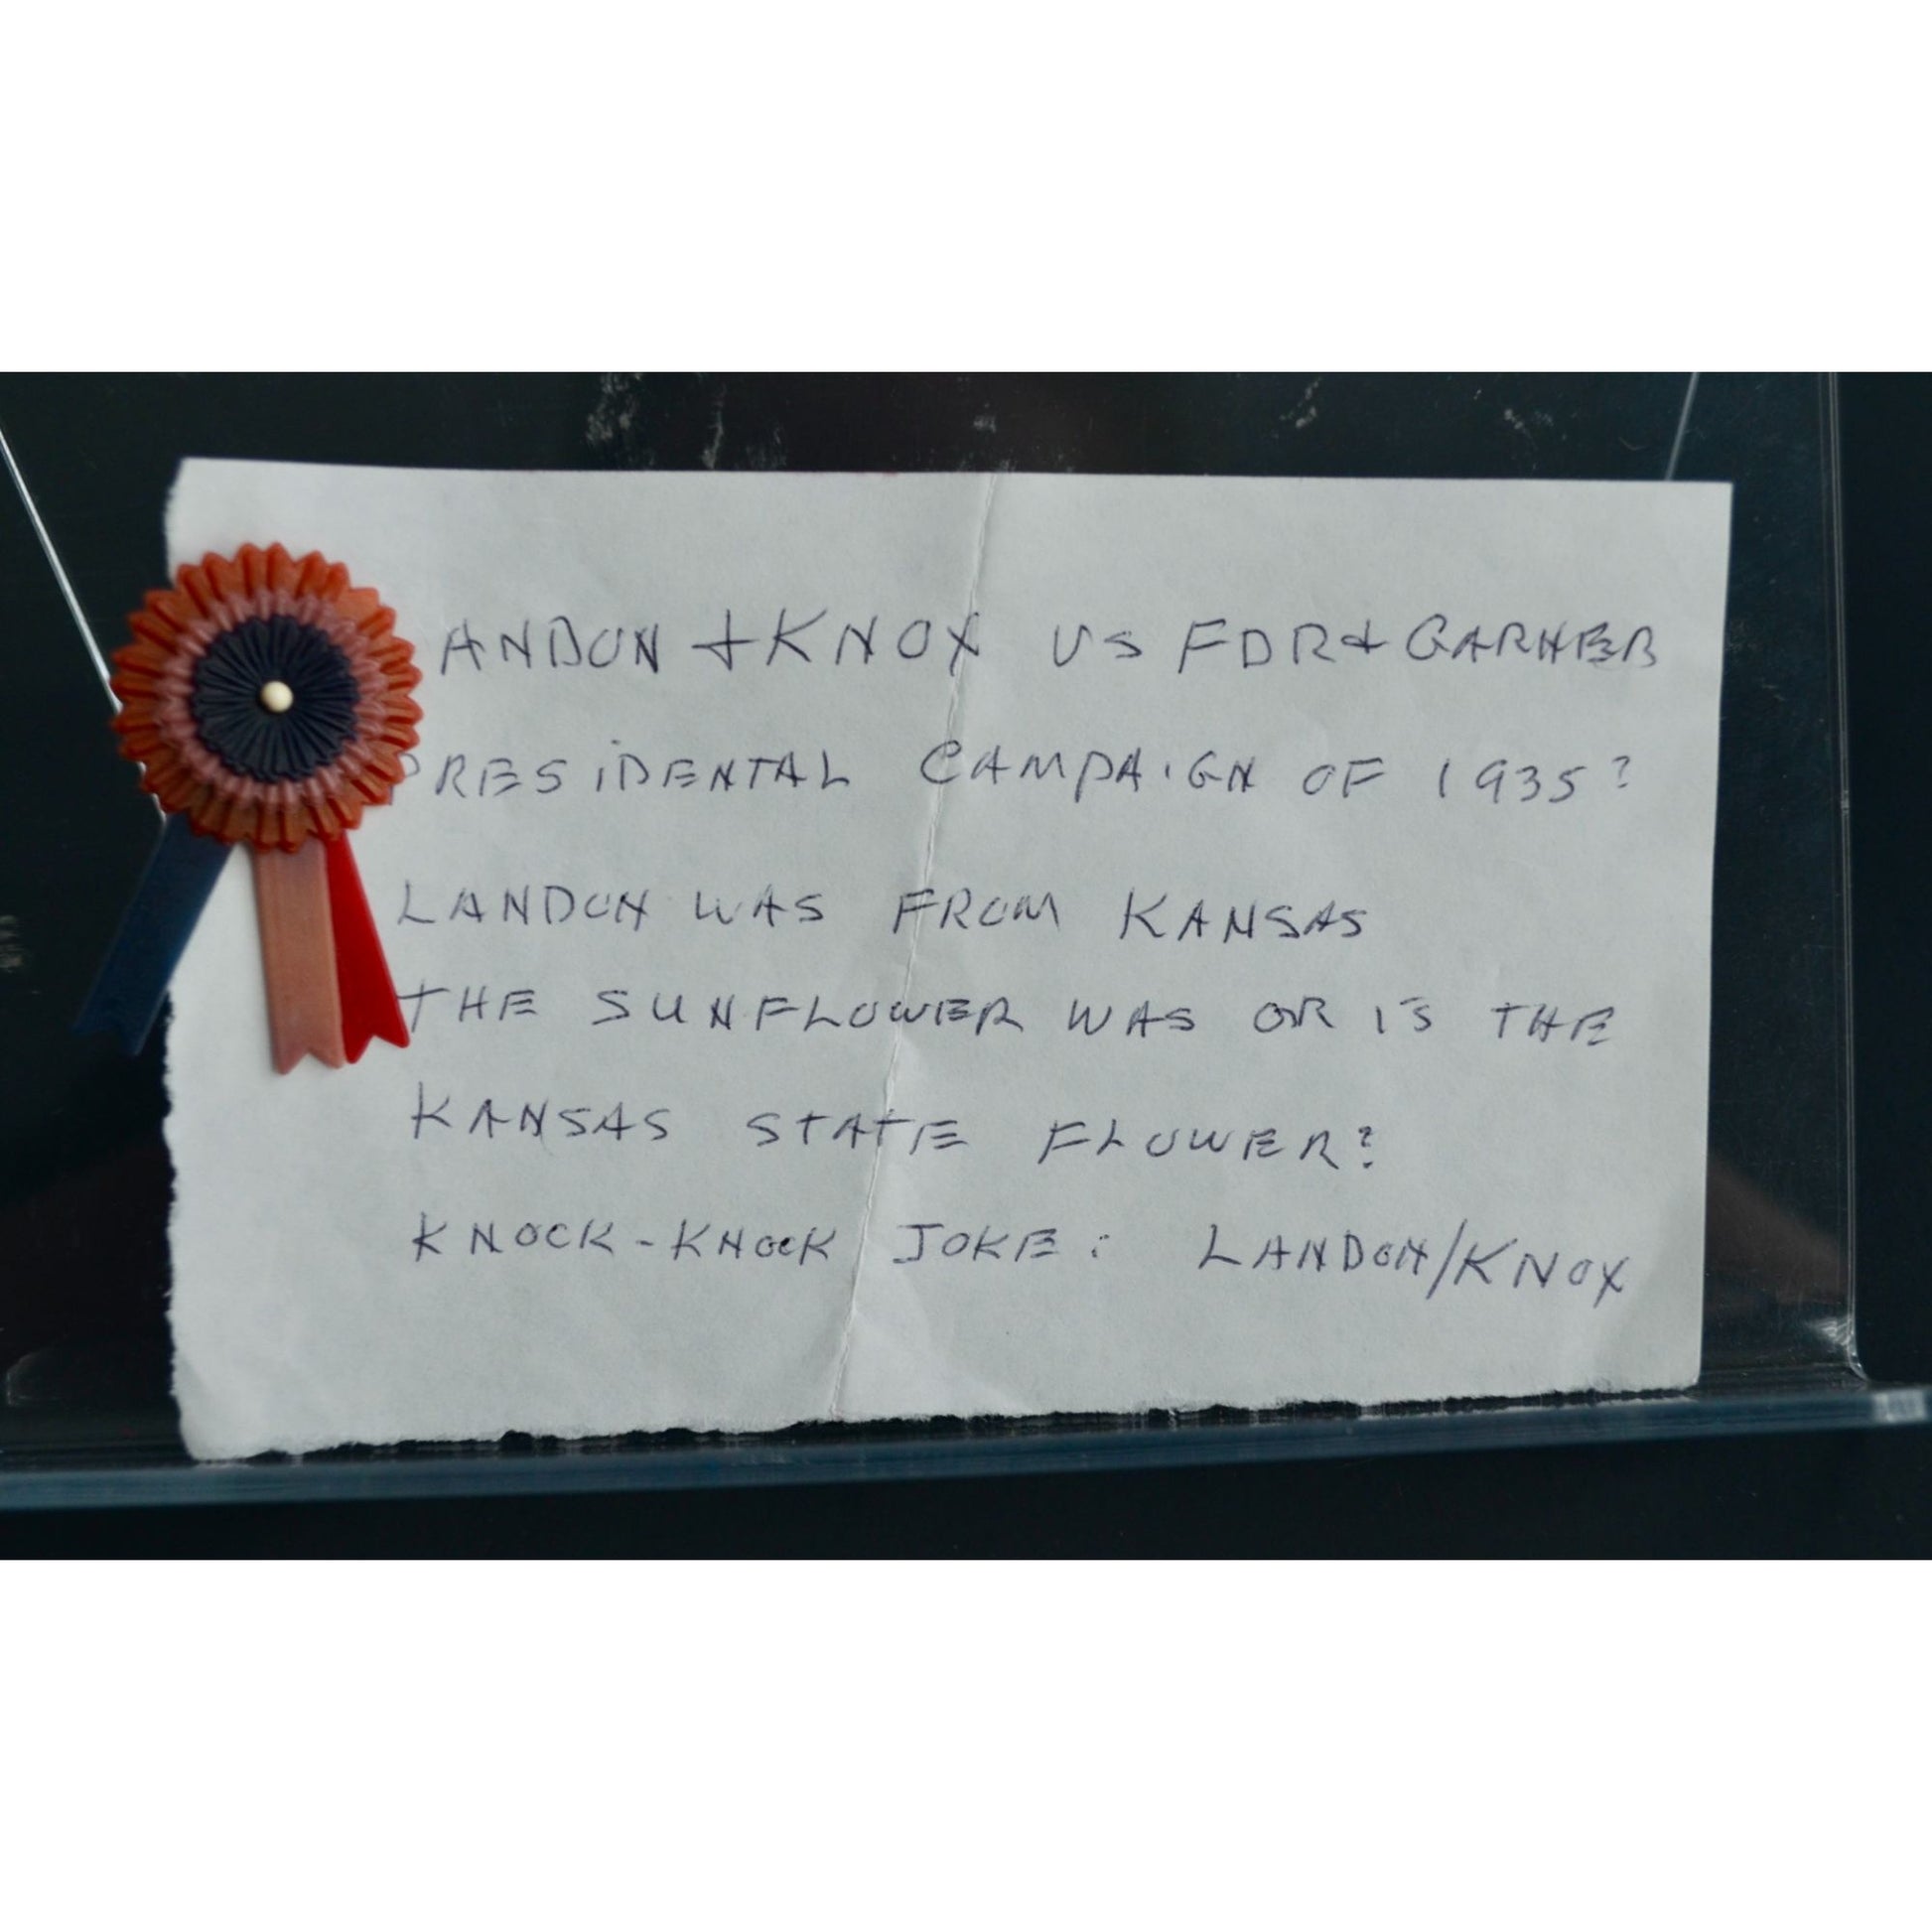 ANDON & KNOX VS FDR & GARNER
PRESIDENTAL CAMPAIGN OF 1935?
LANDON WAS FROM KANSAS
THE SUNFLOWER WAS OR IS THE
KANSAS STATE FLOWER?
KNOCK-KNOCK JOKE: LANDON/KNOX